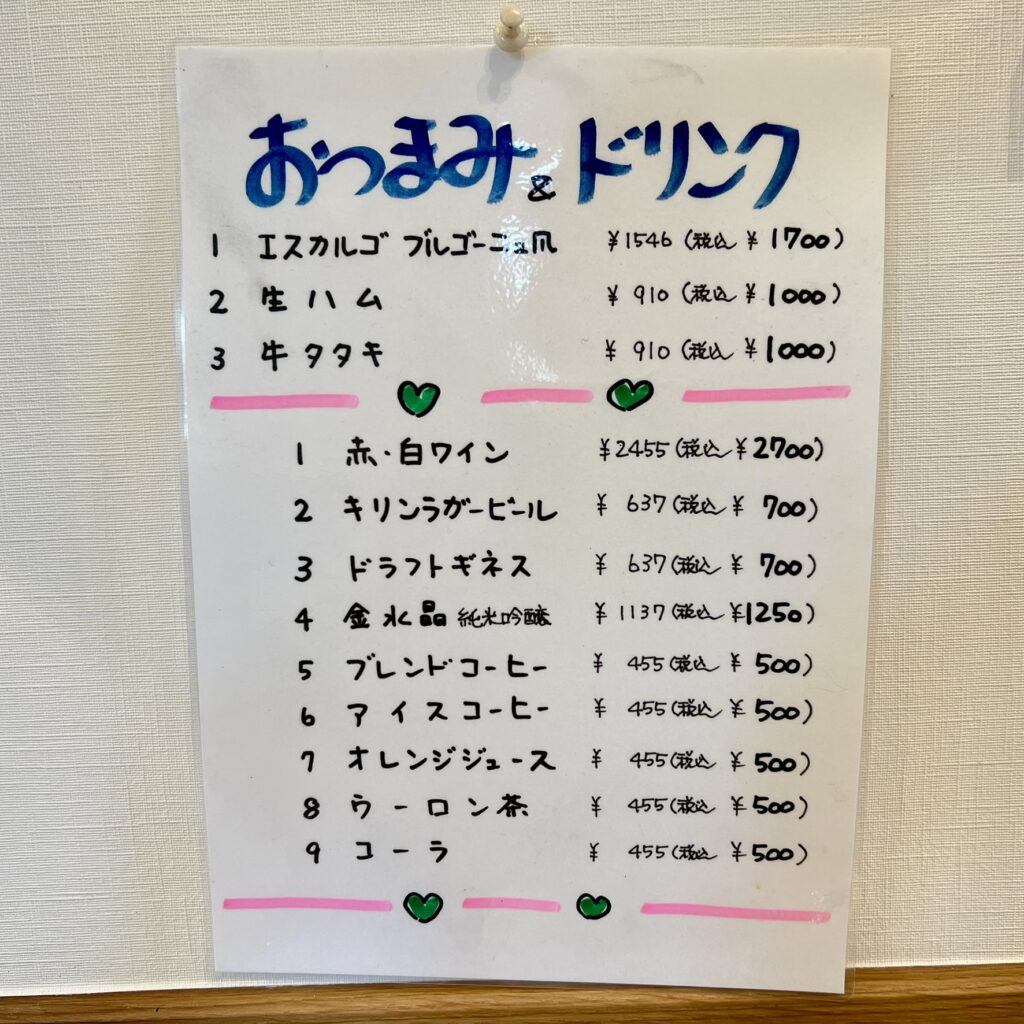 おつまみ & ドリンク
1 エスカルゴ ブルゴーニュ風 ¥1546 (税込 ¥1700)
2 生ハム ¥910 (税込 ¥1000)
3 牛タタキ ¥910 (税込 ¥1000)
1 赤・白ワイン ¥2455 (税込 ¥2700)
2 キリンラガービール ¥637 (税込 ¥700)
3 ドラフトギネス ¥637 (税込 ¥700)
4 金水晶 純米吟醸 ¥1137 (税込 ¥1250)
5 ブレンドコーヒー ¥455 (税込 ¥500)
6 アイスコーヒー ¥455 (税込 ¥500)
7 オレンジジュース ¥455 (税込 ¥500)
8 ウーロン茶 ¥455 (税込 ¥500)
9 コーラ ¥455 (税込 ¥500)